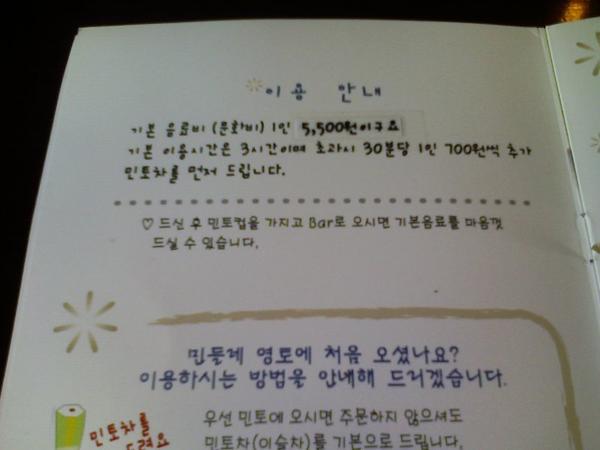 이용 안내
기본 음료비 (문화비) 1인 5,500원이구요
기본 이용시간은 3시간이며 초과시 30분당 1인 700원씩 추가
민토차를 먼저 드립니다.
♡ 드신 후 민토컵을 가지고 Bar로 오시면 기본음료를 마음껏
드실 수 있습니다.
민들레 영토에 처음 오셨나요?
이용하시는 방법을 안내해 드리겠습니다.
우선 민토에 오시면 주문하지 않으셔도
민토차(이슬차)를 기본으로 드립니다.
민토차를
드려요